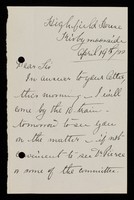 Highfield House
Kirbymoorside
April 19th/10
Dear Sir
In answer to your letter
this morning, I will
come by the 10 train
tomorrow to see you
on the matter if not
convenient to see
some of the committee.